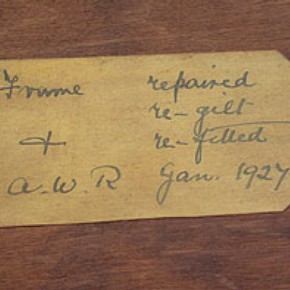 Frame repaired
re-gilt
+ re-fitted
A.W.R Jan. 1927